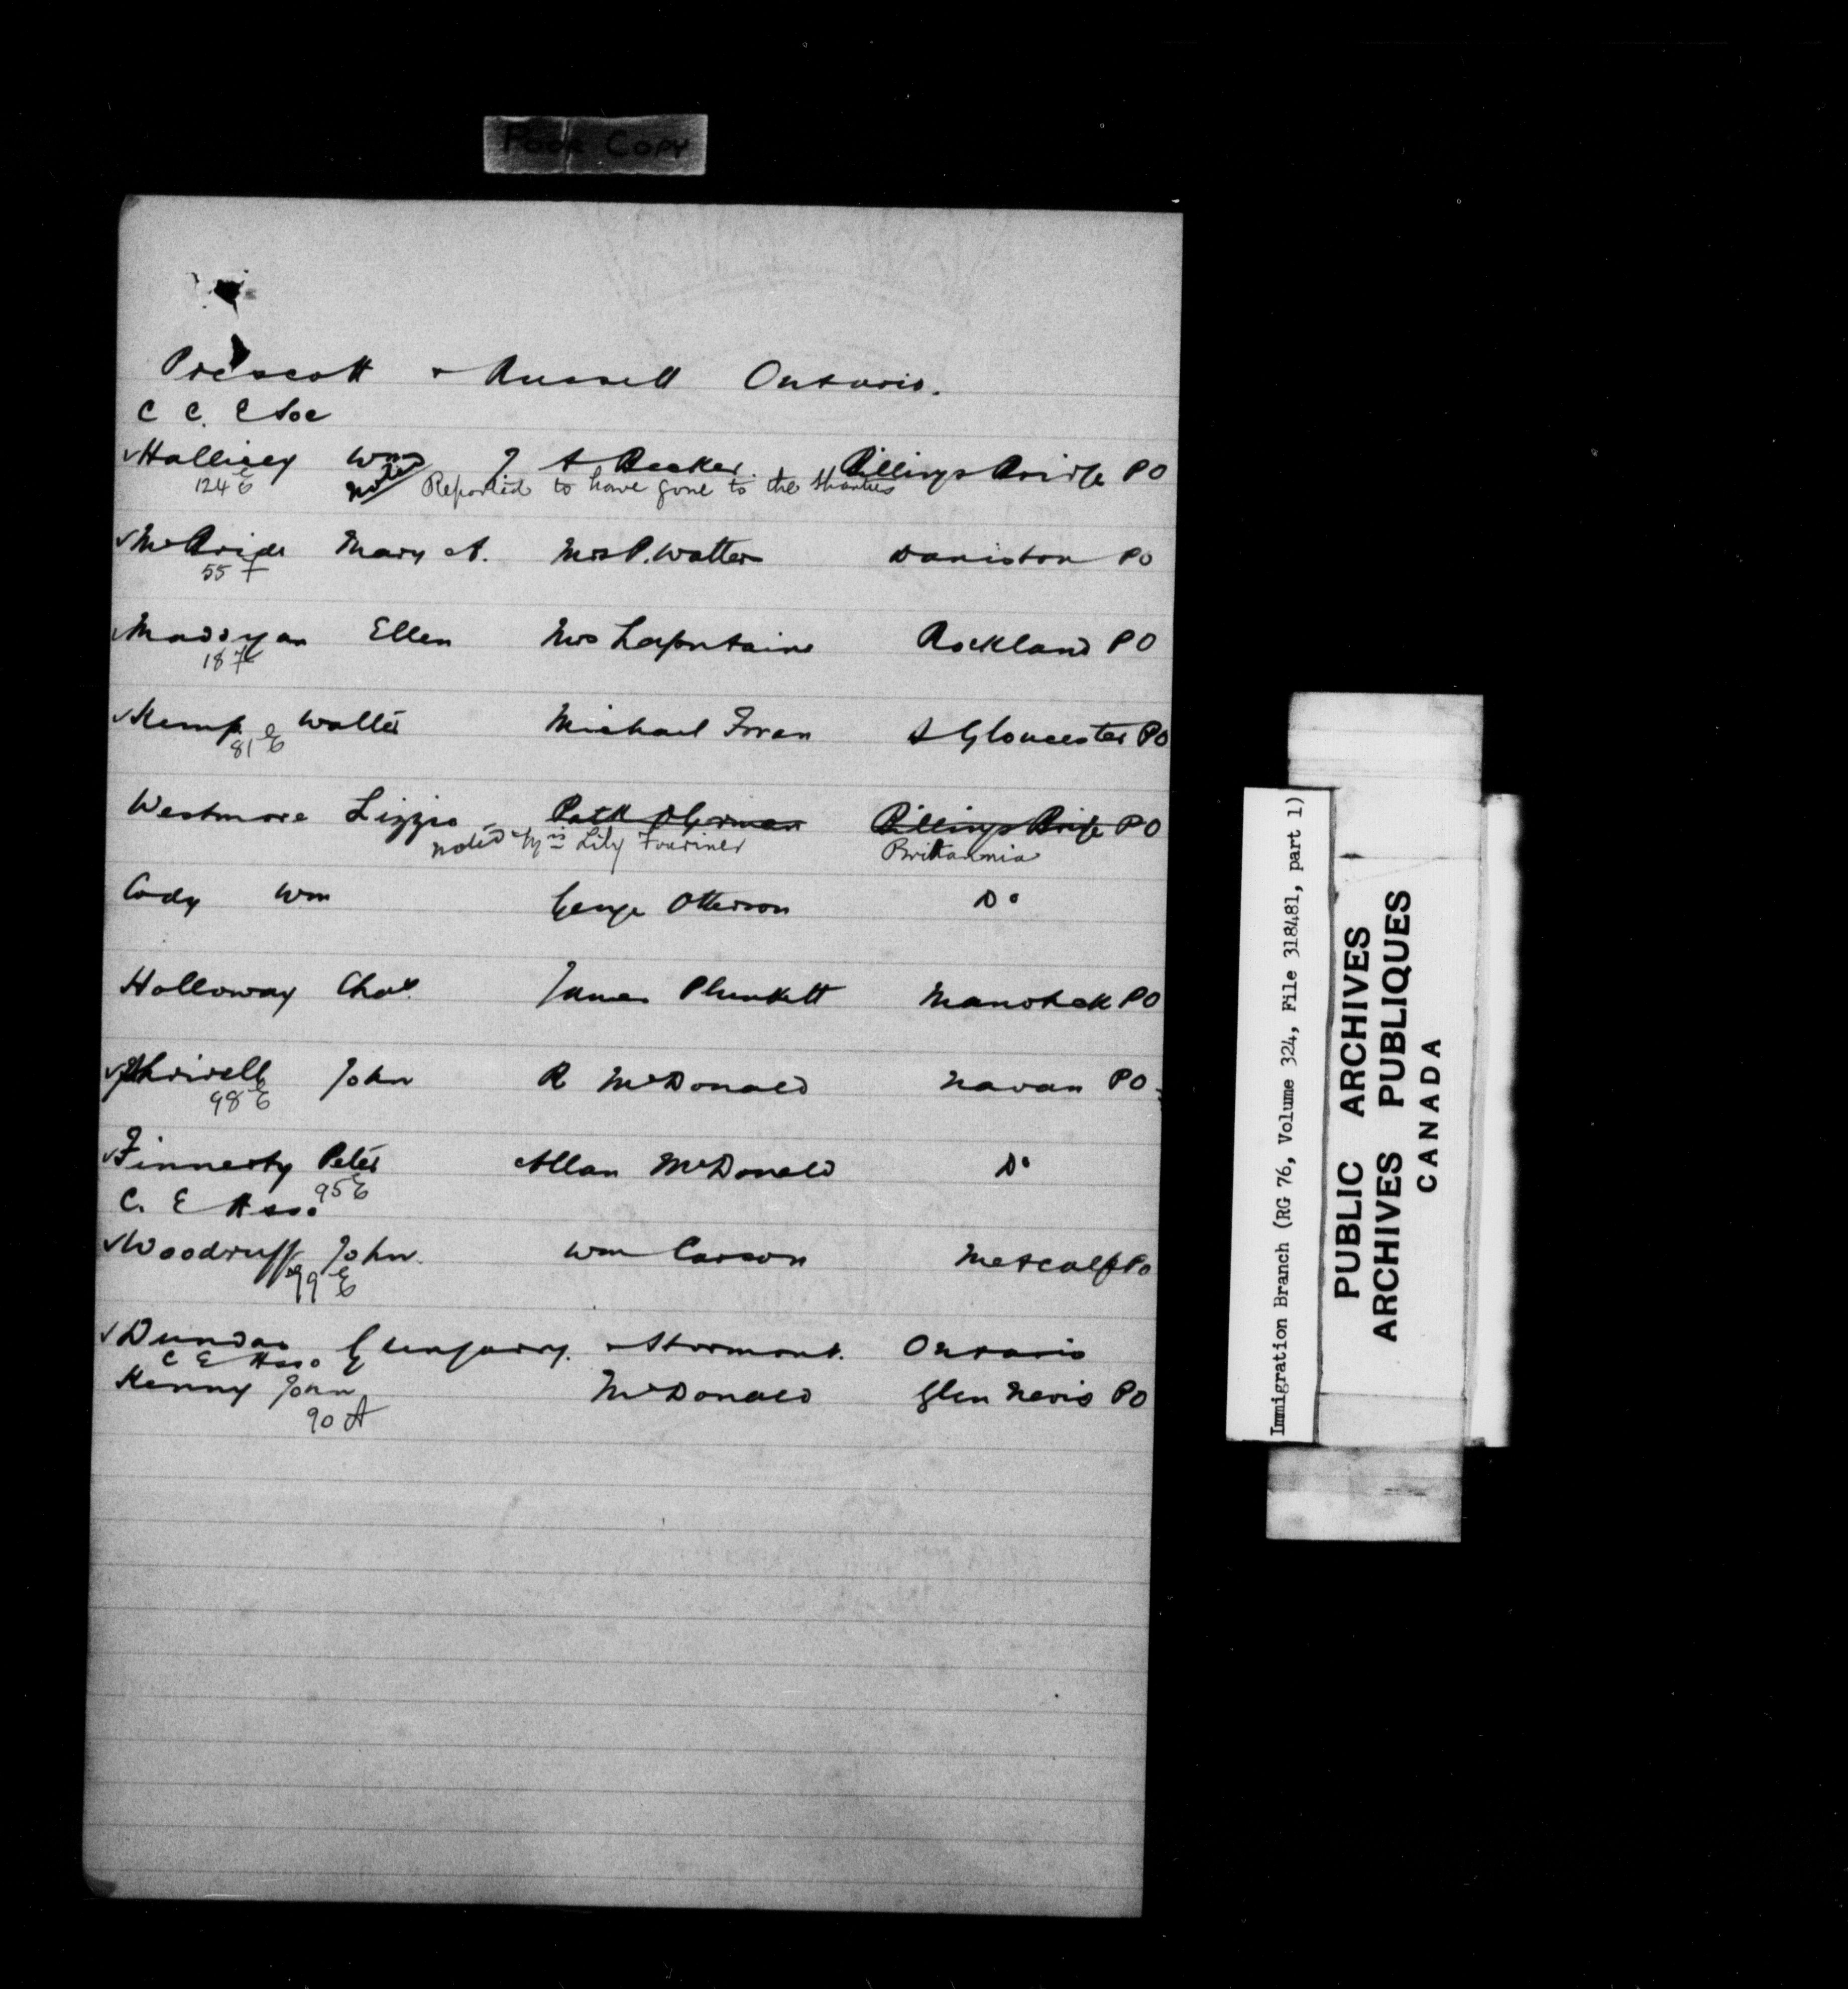 Poor Copy
Prescott & Russell Ontario.
C C. E Soc
✓Hallisey Wm J A Becker. Billings Bridge PO
124 E noted Reported to have gone to the Shanties
✓McBride Mary A. Mrs P. Watters Daniston PO
55 F
✓Madigan Ellen Mrs Lafontaine Rockland PO
18 F
✓Kemp Walter Michael Foran S Gloucester PO
81 E
Westmore Lizzie Patk Gorman Billings Bridge PO
noted Lily Fouriner Brittannia
Cody Wm George Otterson Do
Holloway Chas. James Plunkett Manotick PO
John R McDonald Navan PO
98 E
✓Finnerty Peter Allan McDonald Do
C. E Asso 95 E
✓Woodruff John. Wm Carson Metcalf Po
99 E
✓Dundas Glengarry. & Stormont. Ontario
C E Asso
Kenny John McDonald Glen Nevis PO
90 A
Immigration Branch (RG 76, Volume 324, File 318481, part 1)
PUBLIC ARCHIVES
ARCHIVES PUBLIQUES
CANADA